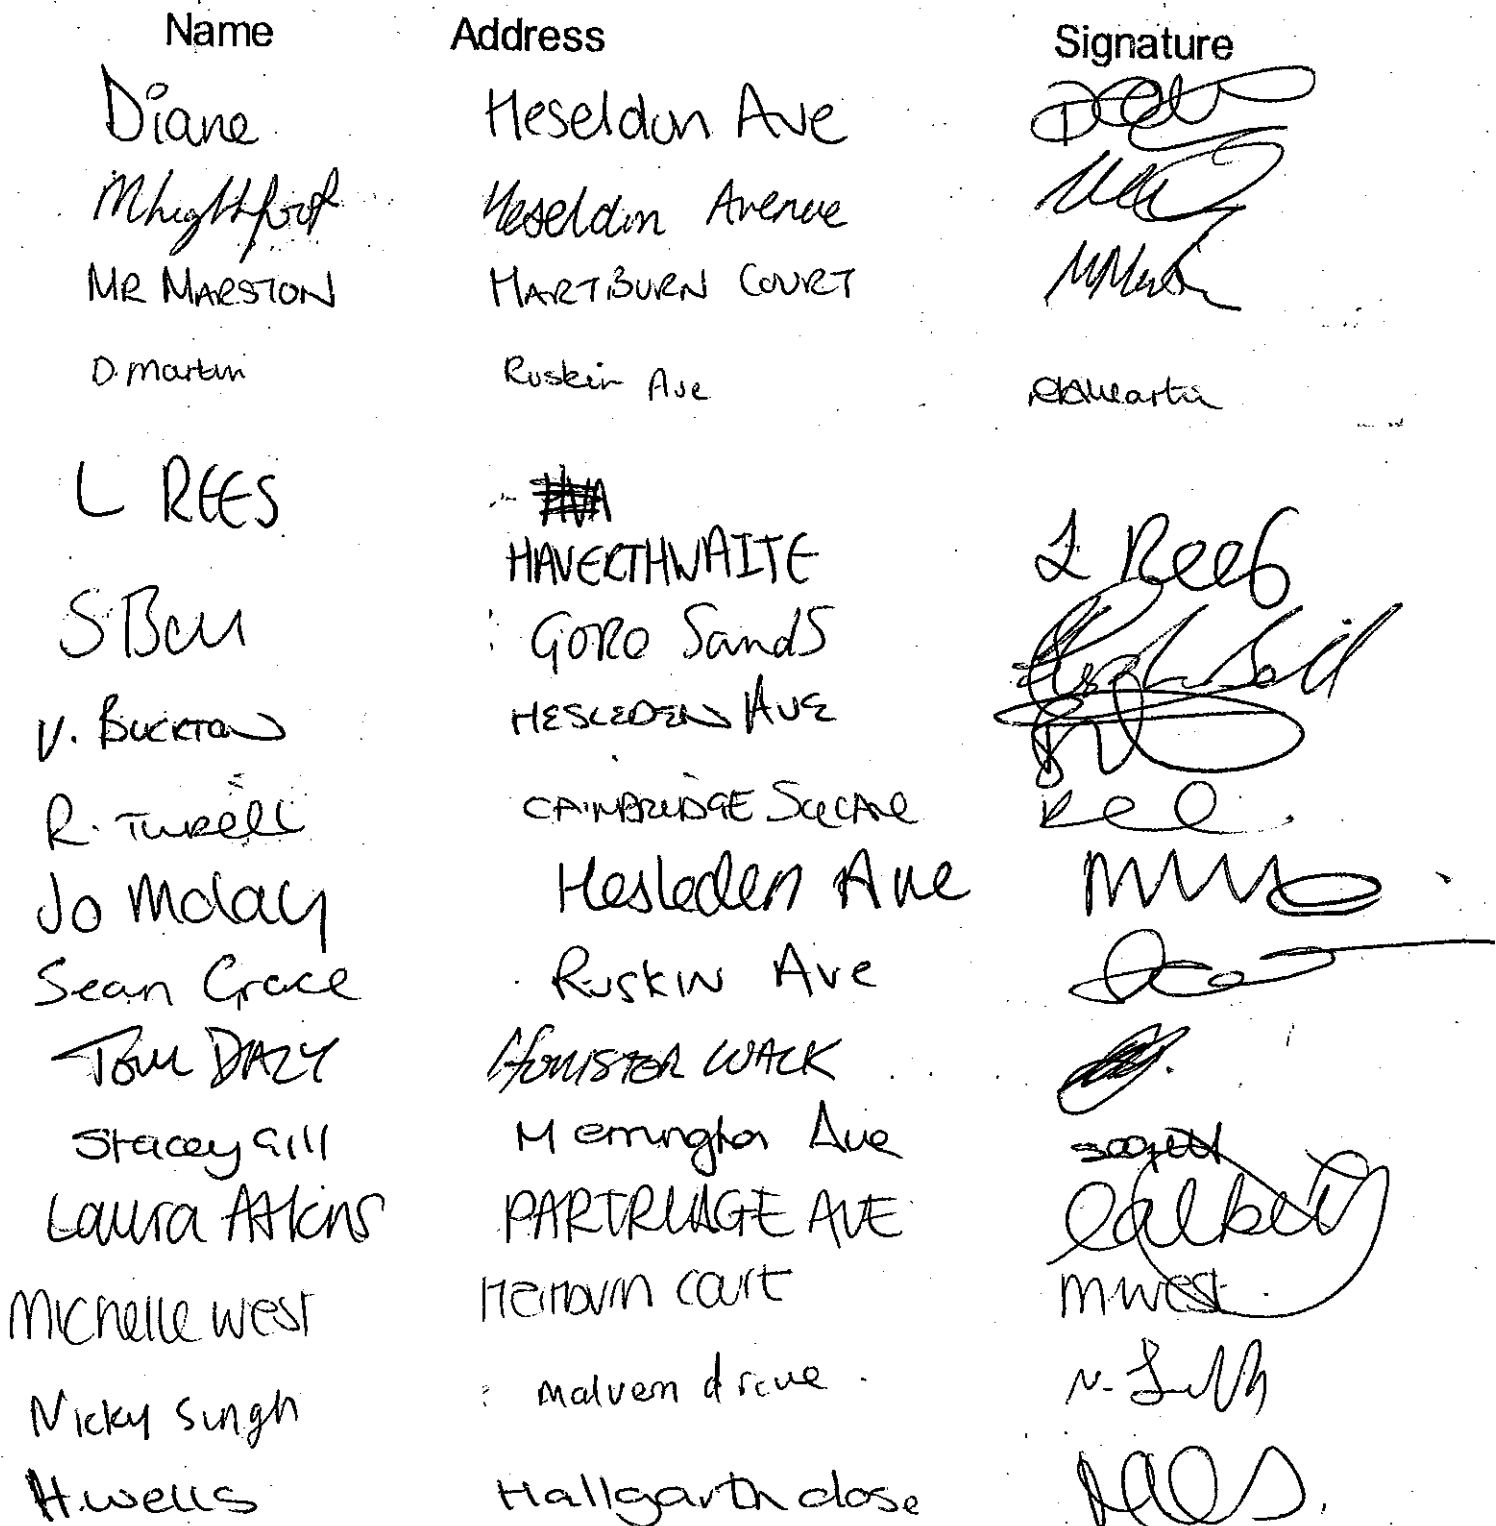 Name Address Signature
Diane Heseldun Ave
MLightfoot Heseldin Avenue
MR MARSTON HARTBURN COURT
D. Martin Ruskin Ave
L REES
HAVERTHWAITE L Rees
S Bell GORO Sands
V. BUCKTON HESLEDEN AVE
R. Turell CAMBRIDGE Square
Jo Mclay Hesleden Ave
Sean Grace Ruskin Ave
Tom DAZY WALK
Stacey Gill Merrington Ave
Laura Atkins PARTRIDGE AVE
Michelle West court M West
Nicky Singh Malvern drive
H. wells Hallgarth close